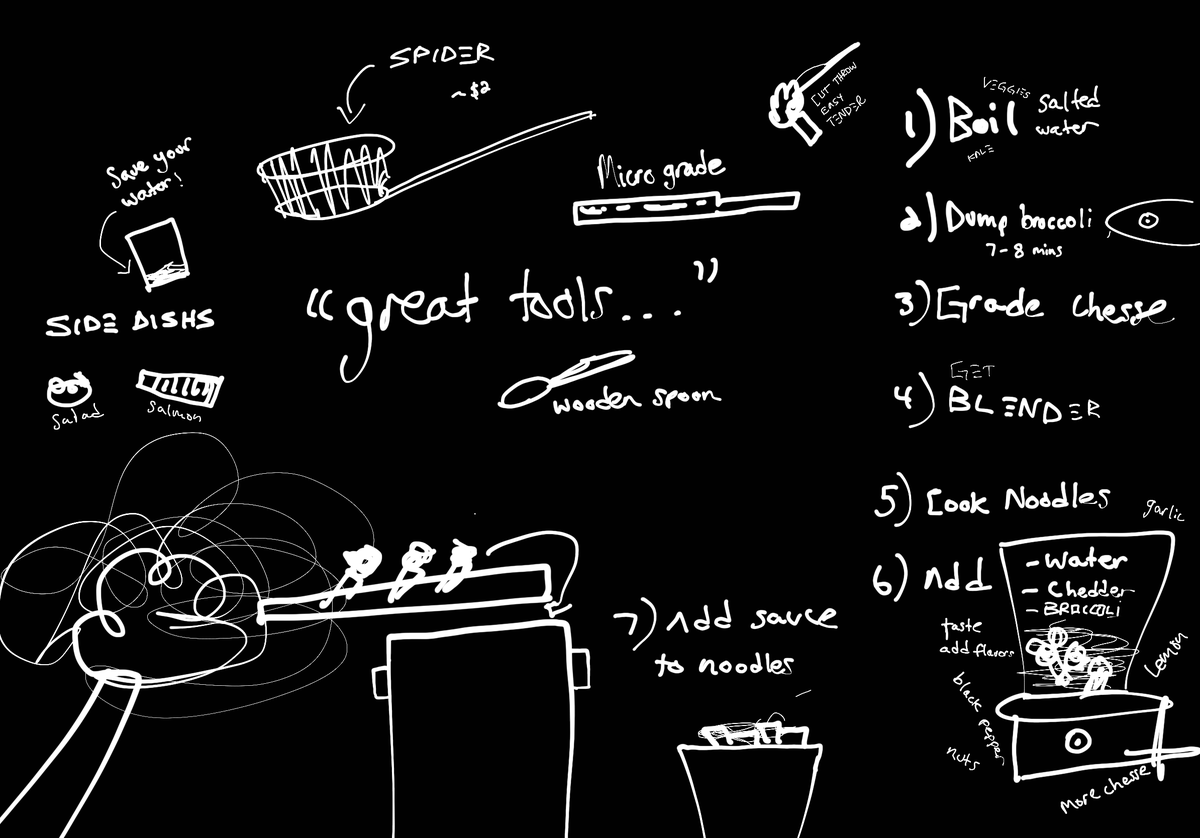 SPIDER
~$2
Save your
water!
SIDE DISHS
Salad
Salmon
Micro grade
"great tools..."
wooden spoon
CUT THROW
EASY
TENDER
1) Boil
VEGGIES
KALE
Salted
water
2) Dump broccoli
7-8 mins
3) Grade chesse
4) GET
BLENDER
5) Cook Noodles
6) Add
garlic
- Water
- Chedder
- BROCCOLI
taste
add flavors
Lemon
black pepper
nuts
More chesse
7) Add sauce
to noodles